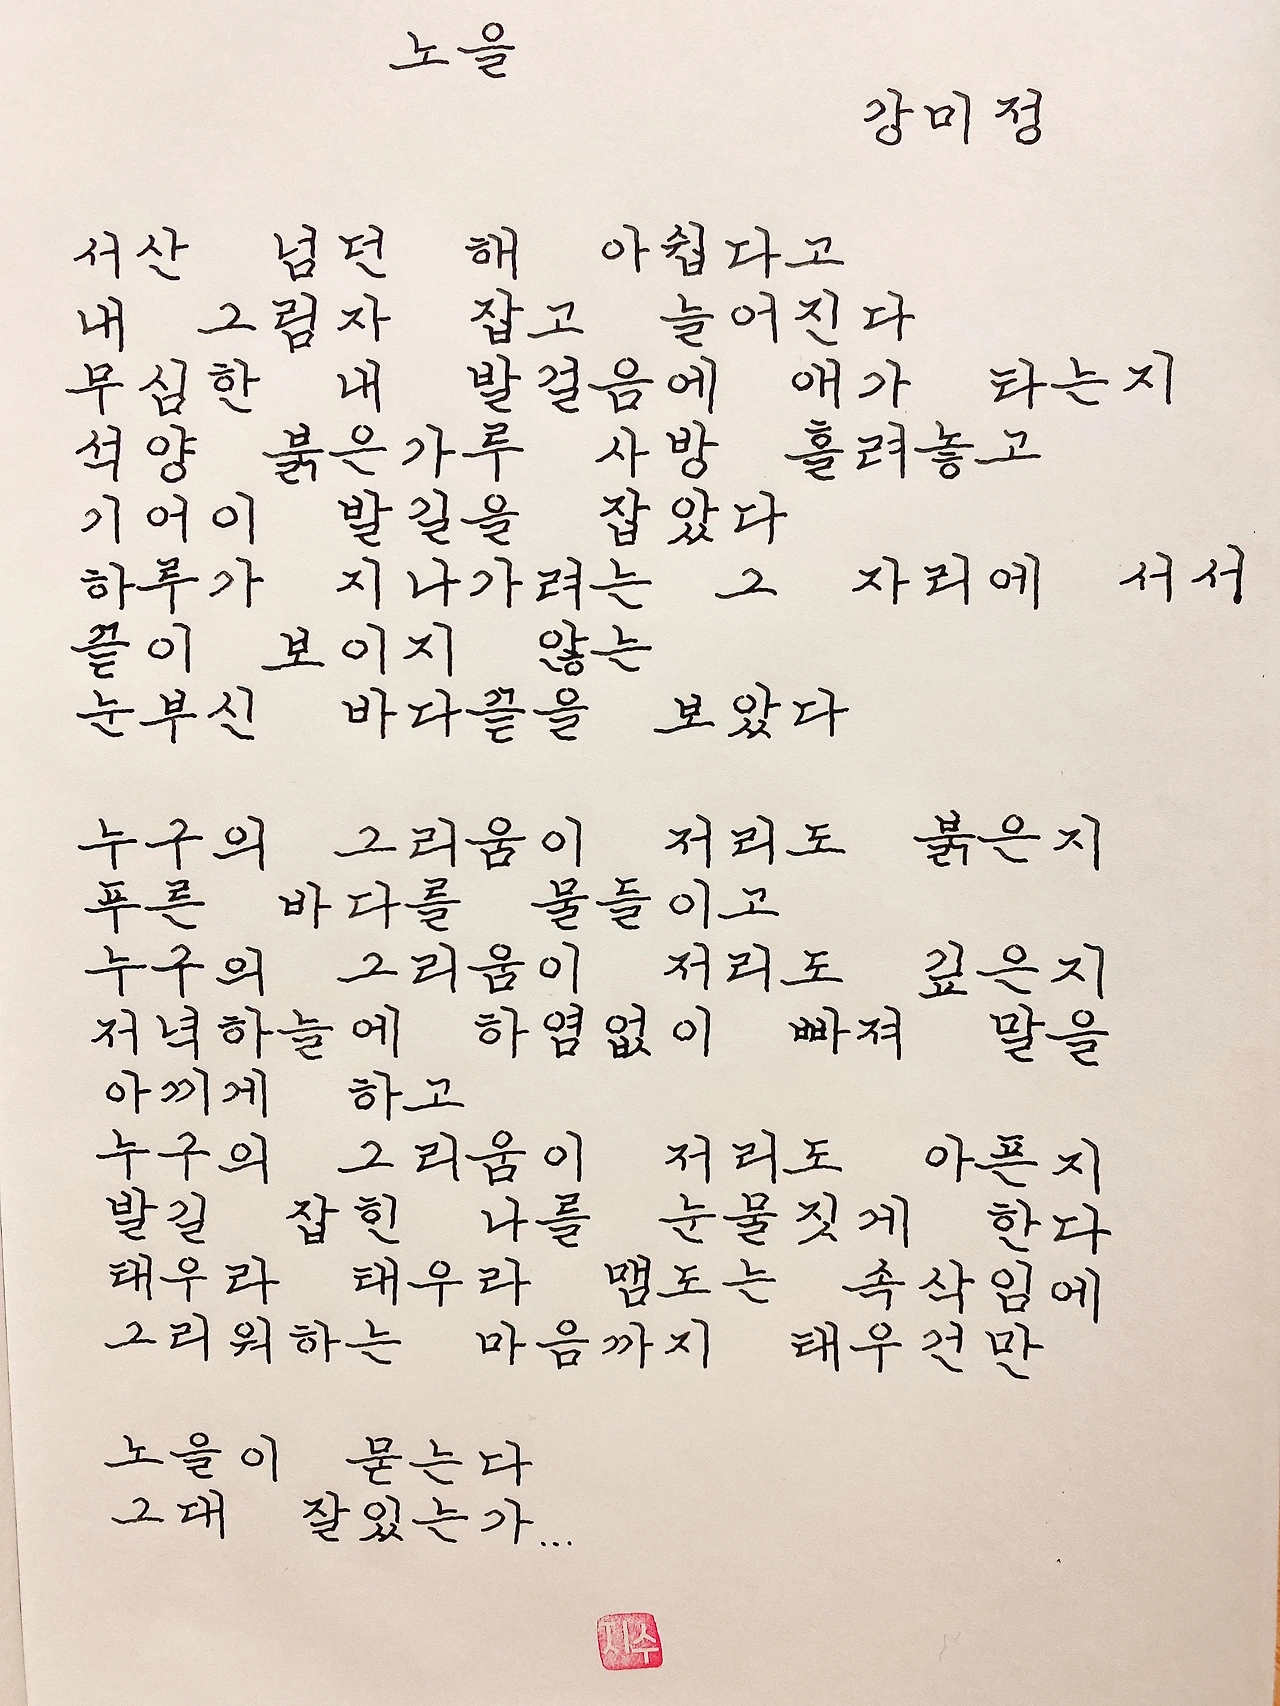 노을
강미정
서산 넘던 해 아쉽다고
내 그림자 잡고 늘어진다
무심한 내 발걸음에 애가 타는지
석양 붉은가루 사방 흘려놓고
기어이 발길을 잡았다
하루가 지나가려는 그 자리에 서서
끝이 보이지 않는
눈부신 바다끝을 보았다
누구의 그리움이 저리도 붉은지
푸른 바다를 물들이고
누구의 그리움이 저리도 깊은지
저녁하늘에 하염없이 빠져 말을
아끼게 하고
누구의 그리움이 저리도 아픈지
발길 잡힌 나를 눈물짓게 한다
태우라 태우라 맴도는 속삭임에
그리워하는 마음까지 태우건만
노을이 묻는다
그대 잘있는가...
지수